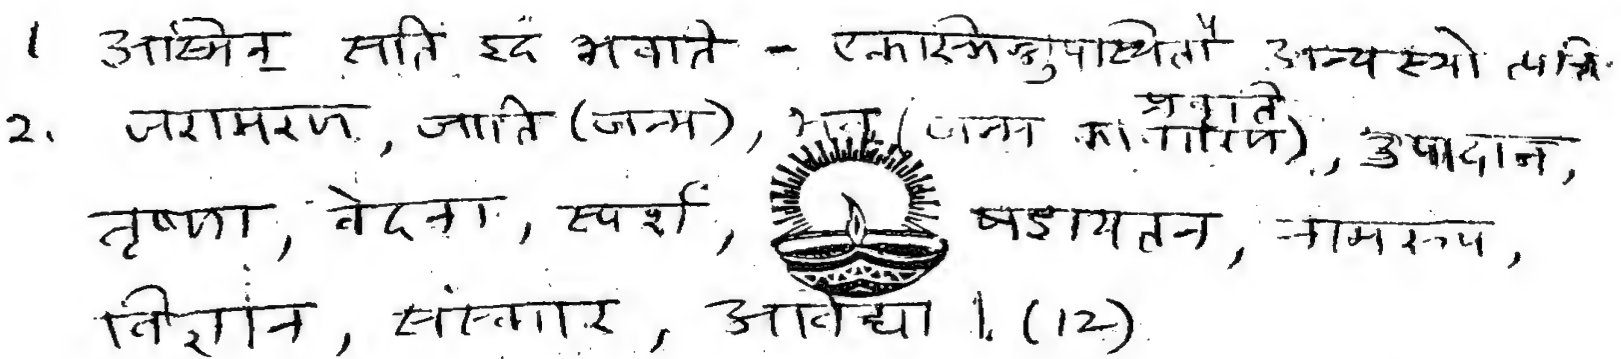 1 अस्मिन् सति इदं भवति - एकस्मिन्नुपस्थितौ अन्यस्योत्पत्ति
2. जरामरण, जाति (जन्म), भव (जन्म का कारण), उपादान,
तृष्णा, वेदना, स्पर्श, षडायतन, नामरूप,
विज्ञान, संस्कार, अविद्या । (12)